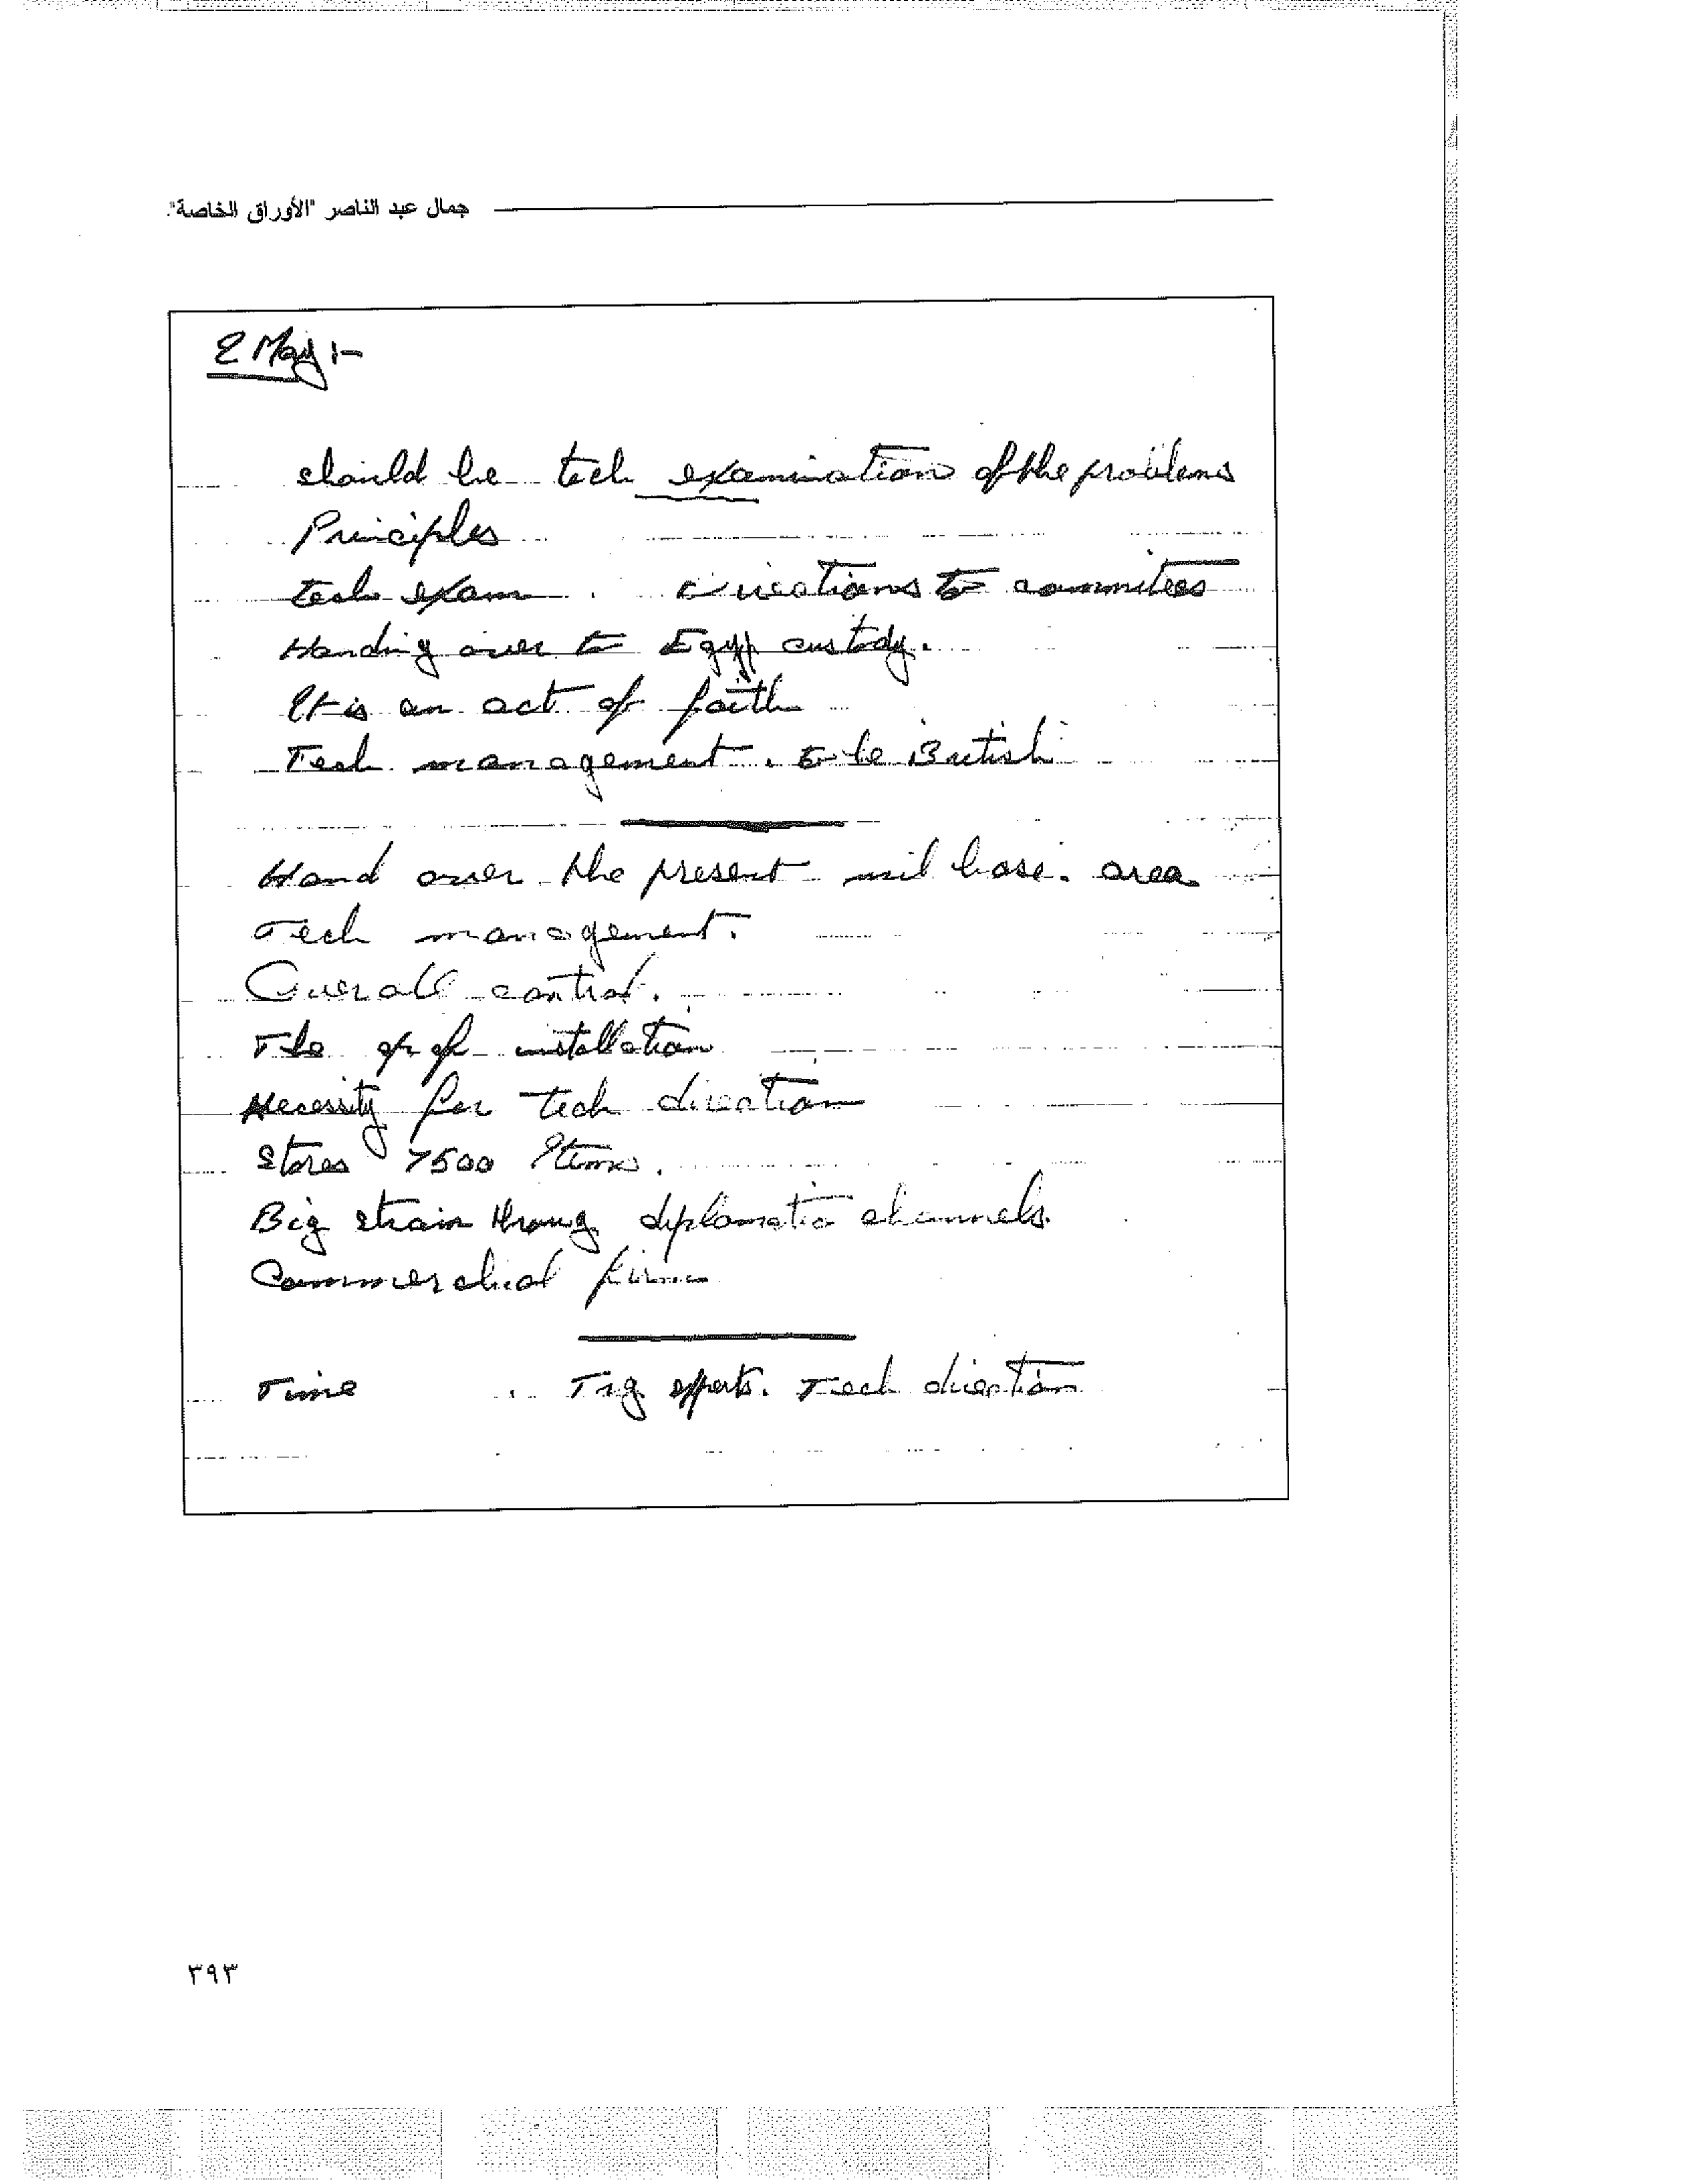 جمال عبد الناصر "الأوراق الخاصة".
2 May :-
should be tech examination of the problems
Principles
tech exam . to commitees
Handing over to Egyp custody.
It is an act of faith
Tech management . to be British
Hand over the present mil base. area
Tech management.
Overall control.
The of installation
Necessity for tech direction
Stores 7500 Items.
Big strain throug diplomatic channels.
Commerchial firm
Time .. Trg experts. Tech direction
٣٩٣